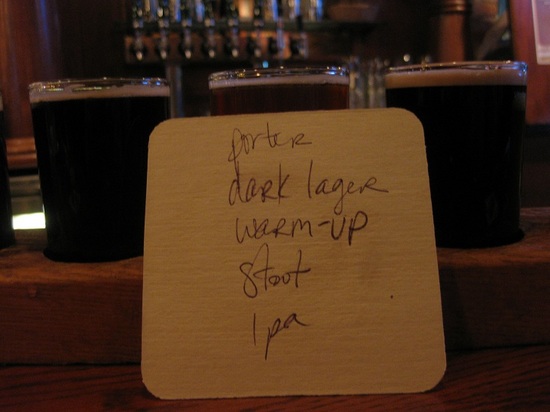 porter
dark lager
warm-up
stout
Ipa